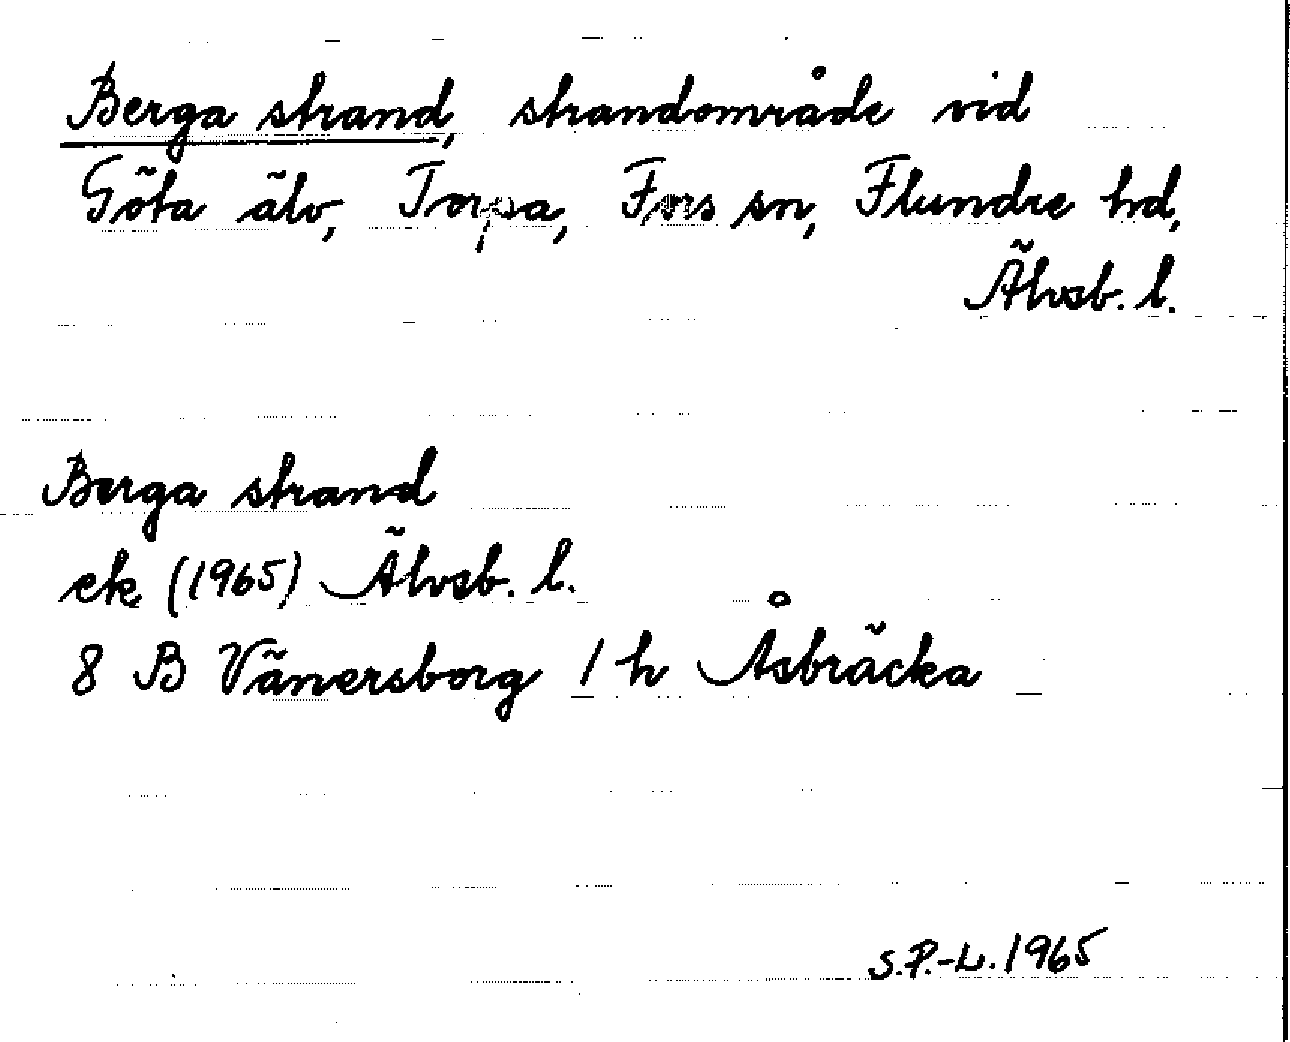 Berga strand, strandområde vid
Göta älv, Torpa, Fors sn, Flundre hd,
Älvsb. l.
Berga strand
ek (1965) Älvsb. l.
8 B Vänersborg 1 h Åsbräcka
S.P.-L. 1965